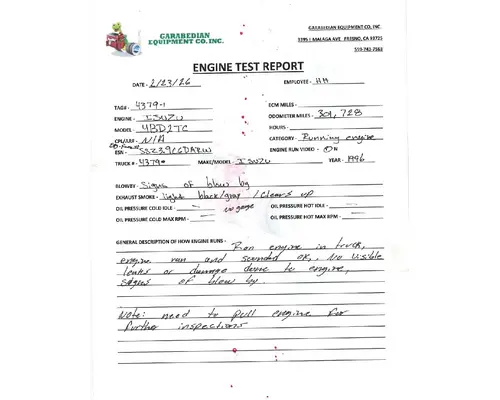 GARABEDIAN
EQUIPMENT CO. INC.
GARABEDIAN EQUIPMENT CO. INC.
MALAGA AVE FRESNO, CA 93725
559-745-7563
ENGINE TEST REPORT
DATE - 2/23/26 EMPLOYEE - HH
TAG# - 4379-1 ECM MILES -
ENGINE - ISUZU ODOMETER MILES - 301,728
MODEL - 4BD2TC HOURS -
CPL/ARR - N/A CATEGORY - Running engine
ESN - ENGINE RUN VIDEO - Y/N
TRUCK # - 4379 MAKE/MODEL - ISUZU YEAR - 1996
BLOWBY - Signs of blow by
EXHAUST SMOKE - light black/gray / clears up
OIL PRESSURE COLD IDLE - no gauge OIL PRESSURE HOT IDLE -
OIL PRESSURE COLD MAX RPM - OIL PRESSURE HOT MAX RPM -
GENERAL DESCRIPTION OF HOW ENGINE RUNS - Ran engine in truck,
engine ran and sounded ok, . No visible
leaks or damage done to engine,
signs of blow by.
Note: need to pull engine for
further inspections